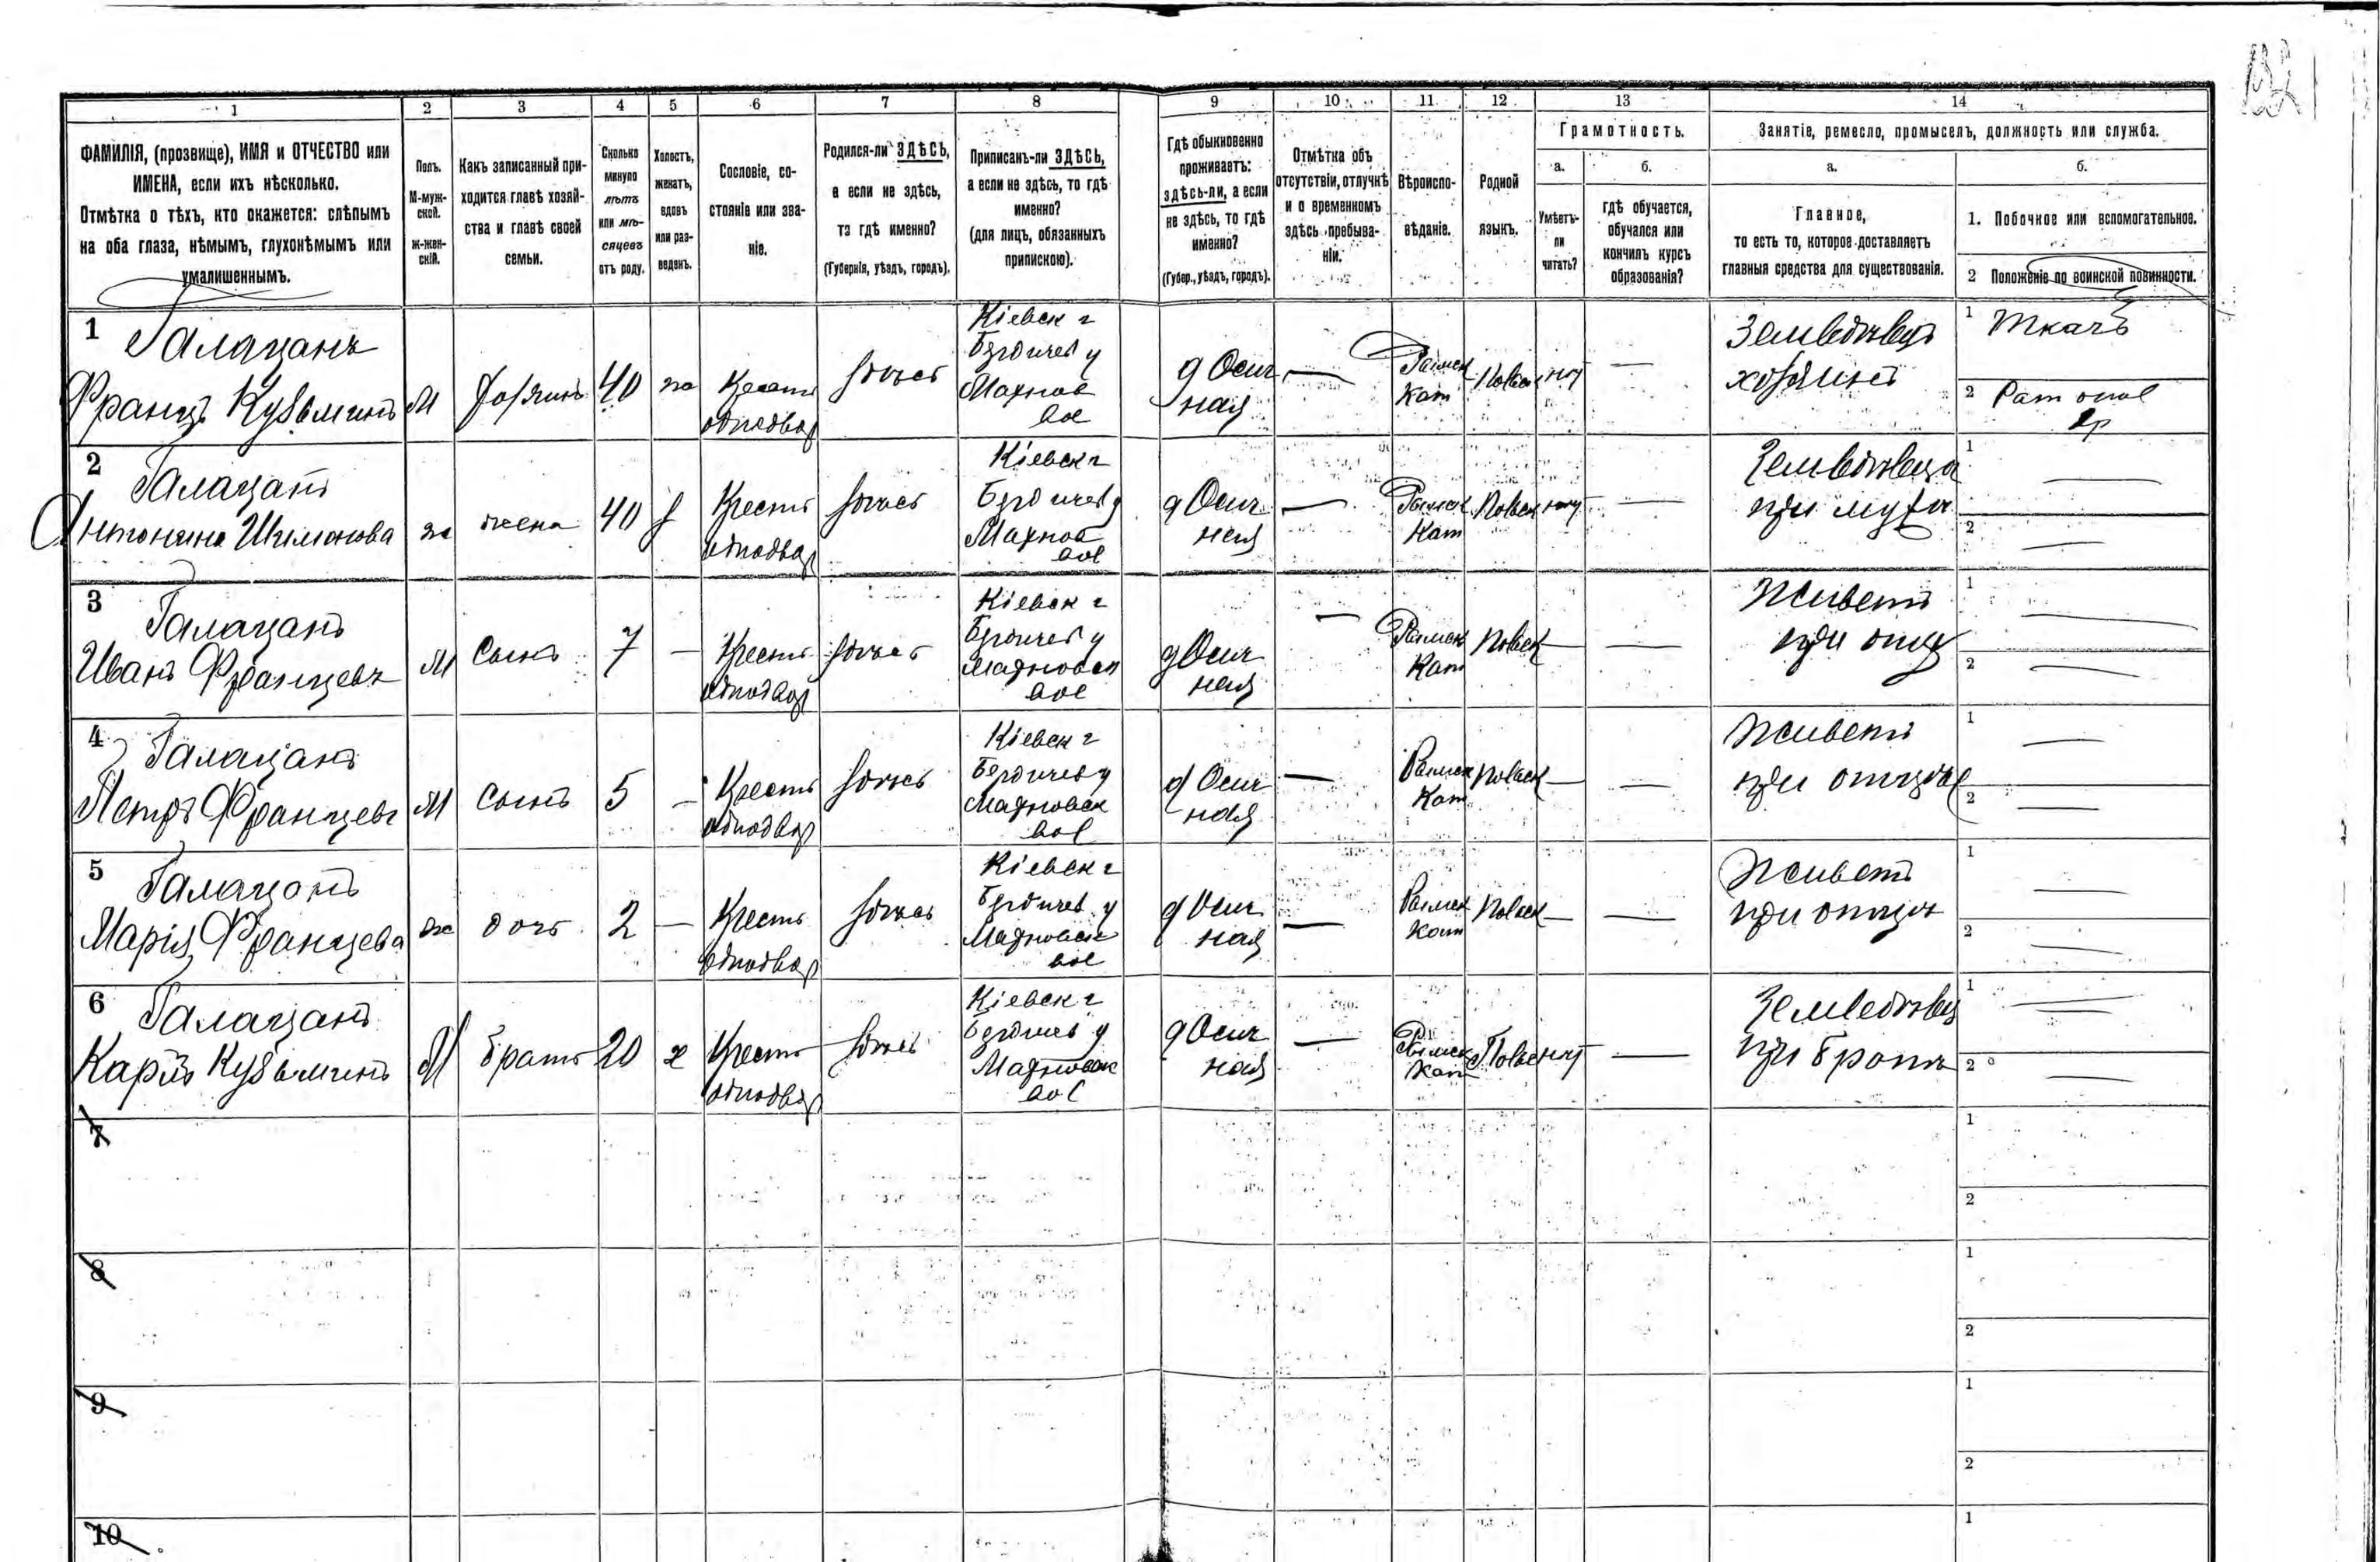 1 2 3 4 5 6 7 8 9 10 11 12 13 14
ФАМИЛІЯ, (прозвище), ИМЯ и ОТЧЕСТВО или
ИМЕНА, если ихъ нѣсколько.
Отмѣтка о тѣхъ, кто окажется: слѣпымъ
на оба глаза, нѣмымъ, глухонѣмымъ или
умалишеннымъ.
Полъ.
М-муж-
ской.
ж-жен-
скій.
Какъ записанный при-
ходится главѣ хозяй-
ства и главѣ своей
семьи.
Сколько
минуло
лѣтъ
или мѣ-
сяцевъ
отъ роду.
Холостъ,
женатъ,
вдовъ
или раз-
веденъ.
Сословіе, со-
стояніе или зва-
ніе.
Родился-ли ЗДѢСЬ,
а если не здѣсь,
то гдѣ именно?
(Губернія, уѣздъ, городъ).
Приписанъ-ли ЗДѢСЬ,
а если не здѣсь, то гдѣ
именно?
(для лицъ, обязанныхъ
припискою).
Гдѣ обыкновенно
проживаетъ:
здѣсь-ли, а если
не здѣсь, то гдѣ
именно?
(Губер., уѣздъ, городъ).
Отмѣтка объ
отсутствіи, отлучкѣ
и о временномъ
здѣсь пребыва-
ніи.
Вѣроиспо-
вѣданіе.
Родной
языкъ.
Грамотность.
а.
Умѣетъ-
ли
читать?
б.
гдѣ обучается,
обучался или
кончилъ курсъ
образованія?
Занятіе, ремесло, промыселъ, должность или служба.
а.
Главное,
то есть то, которое доставляетъ
главныя средства для существованія.
б.
1. Побочное или вспомогательное.
2 Положеніе по воинской повинности.
1
Галацанъ
Францъ Кузьминъ
М
хозяинъ
40
ж
Крестъ
однодвор
здѣсь
Кіевск г
Бердичев у
Махнов
вол
д Осич
ная
—
Римск
Кат
Польск
нѣт
—
Земледѣлецъ
хозяинъ
1 Ткачъ
2 Рат опол
2р
2
Галацанъ
Антонина Шимонова
ж
жена
40
з
Крестъ
однодвор
здѣсь
Кіевск г
Бердичев у
Махнов
вол
д Осич
ная
—
Римск
Кат
Польск
нѣт
—
Земледѣлица
при мужѣ
1 —
2 —
3
Галацанъ
Иванъ Францевъ
М
Сынъ
7
—
Крестъ
однодвор
здѣсь
Кіевск г
Бердичев у
Махновск
вол
д Осич
ная
—
Римск
Кат
Польск
—
—
Живетъ
при отцѣ
1 —
2 —
4
Галацанъ
Петръ Францевъ
М
Сынъ
5
—
Крестъ
однодвор
здѣсь
Кіевск г
Бердичев у
Махновск
вол
д Осич
ная
—
Римск
Кат
Польск
—
—
Живетъ
при
1 —
2 —
5
Галацанъ
Марія Францева
ж
дочь
2
—
Крестъ
однодвор
здѣсь
Кіевск г
Бердичев у
Махновск
вол
д Осич
ная
—
Римск
Кат
Польск
—
—
Живетъ
при отцѣ
1 —
2 —
6
Галацанъ
Карпъ Кузьминъ
М
братъ
20
х
Крестъ
однодвор
здѣсь
Кіевск г
Бердичев у
Махновск
вол
д Осич
ная
—
Римск
Кат
Польс
нѣт
—
Земледѣлец
при братѣ
1 —
2 —
7
1
2
8
1
2
9
1
2
10
1